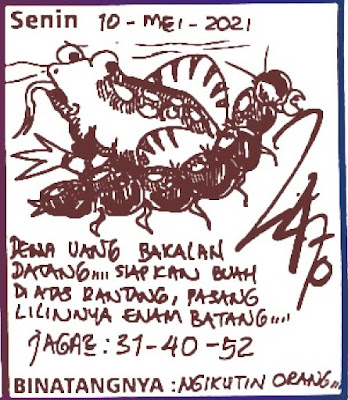 Senin 10 - MEI - 2021
DEWA UANG BAKALAN
DATANG.... SIAPKAN BUAH
DI ATAS RANTANG, PASANG
LILINNYA ENAM BATANG....
JAGA2 : 31-40-52
BINATANGNYA : NGIKUTIN ORANG...